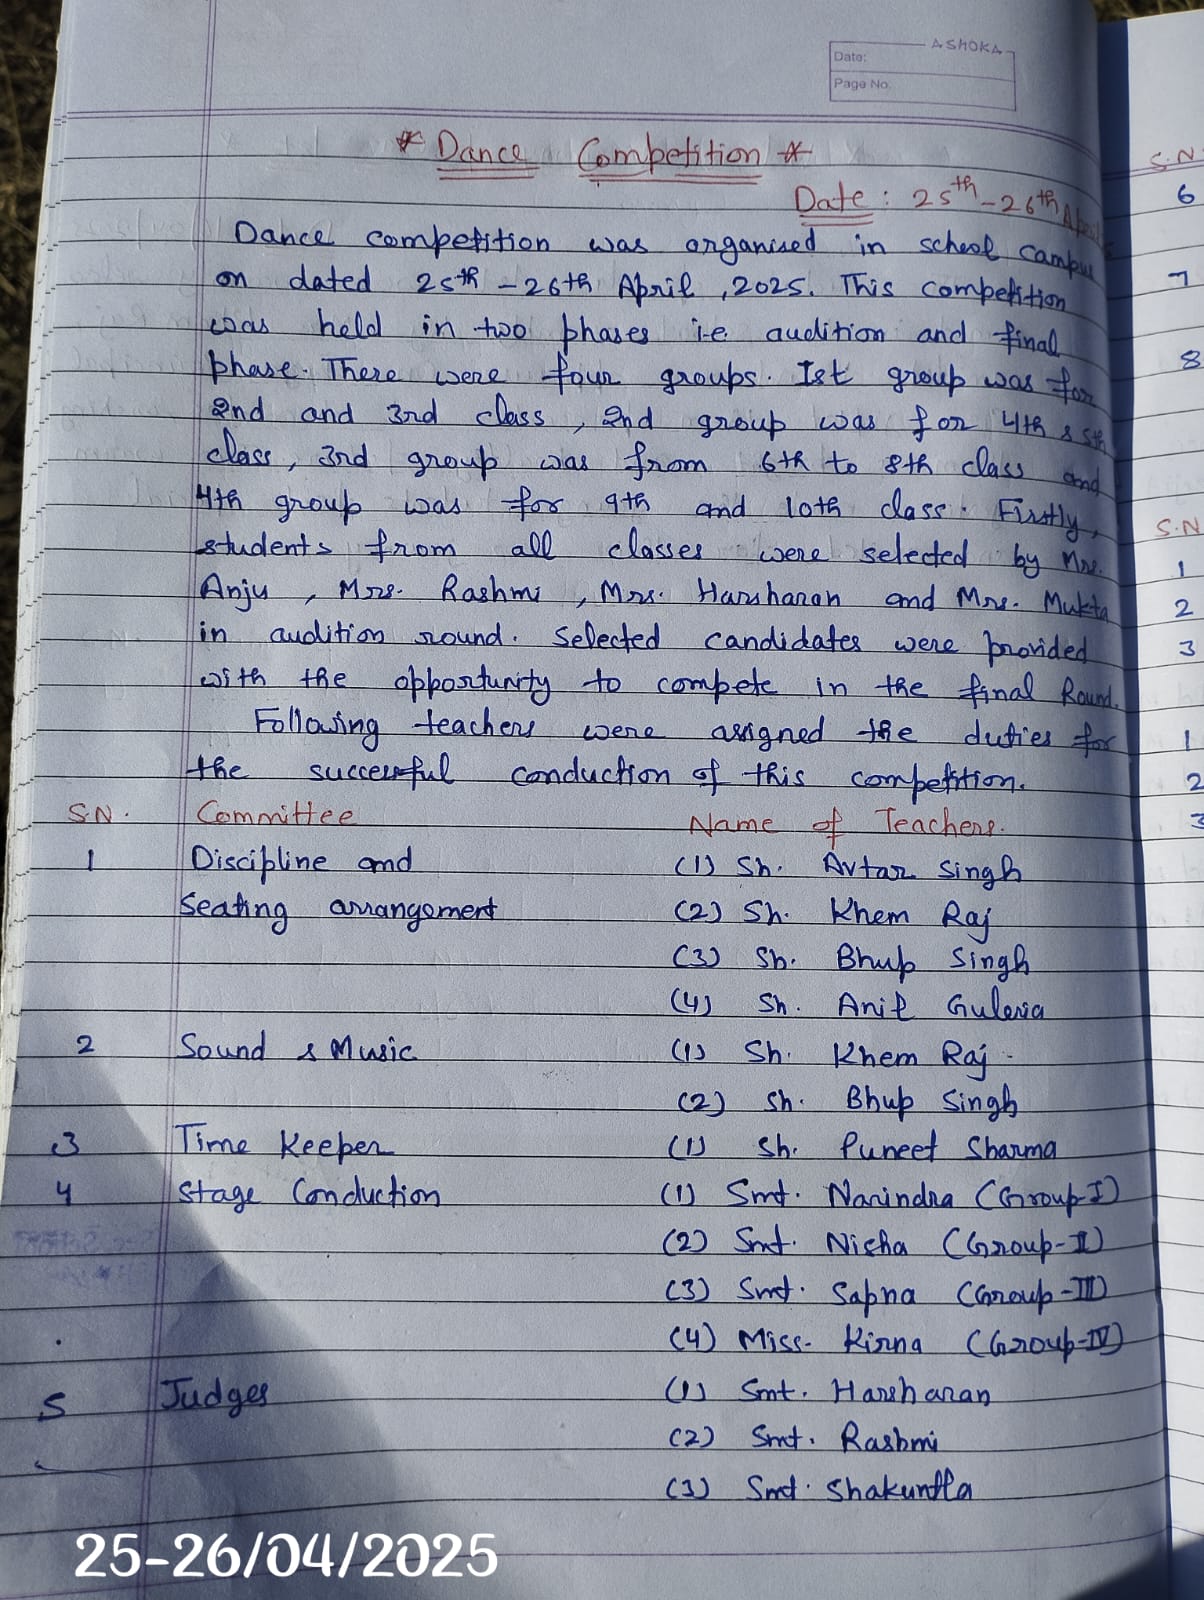 ASHOKA
Date:
Page No.
* Dance Competition *
Date: 25th-26th April
Dance competition was organised in school campus
on dated 25th-26th April, 2025. This competition
was held in two phases i.e. audition and final
phase. There were four groups. Ist group was for
2nd and 3rd class, 2nd group was for 4th & 5th
class, 3rd group was from 6th to 8th class and
4th group was for 9th and 10th class. Firstly,
students from all classes were selected by Mrs.
Anju, Mrs. Rashmi, Mrs. Harsharan and Mrs. Mukta
in audition round. Selected candidates were provided
with the opportunity to compete in the final Round.
Following teachers were assigned the duties for
the successful conduction of this competition.
S.N. Committee Name of Teachers.
1 Discipline and (1) Sh. Avtar Singh
Seating arrangement (2) Sh. Khem Raj
(3) Sh. Bhup Singh
(4) Sh. Anil Guleria
2 Sound & Music (1) Sh. Khem Raj
(2) Sh. Bhup Singh
3 Time Keeper (1) Sh. Puneet Sharma
4 Stage Conduction (1) Smt. Narindra (Group-I)
(2) Smt. Nisha (Group-II)
(3) Smt. Sapna (Group-III)
(4) Miss. Kirna (Group-IV)
5 Judges (1) Smt. Harsharan
(2) Smt. Rashmi
(3) Smt. Shakuntla
25-26/04/2025
S.N.
6
7
8
S.N
1
2
3
1
2
3